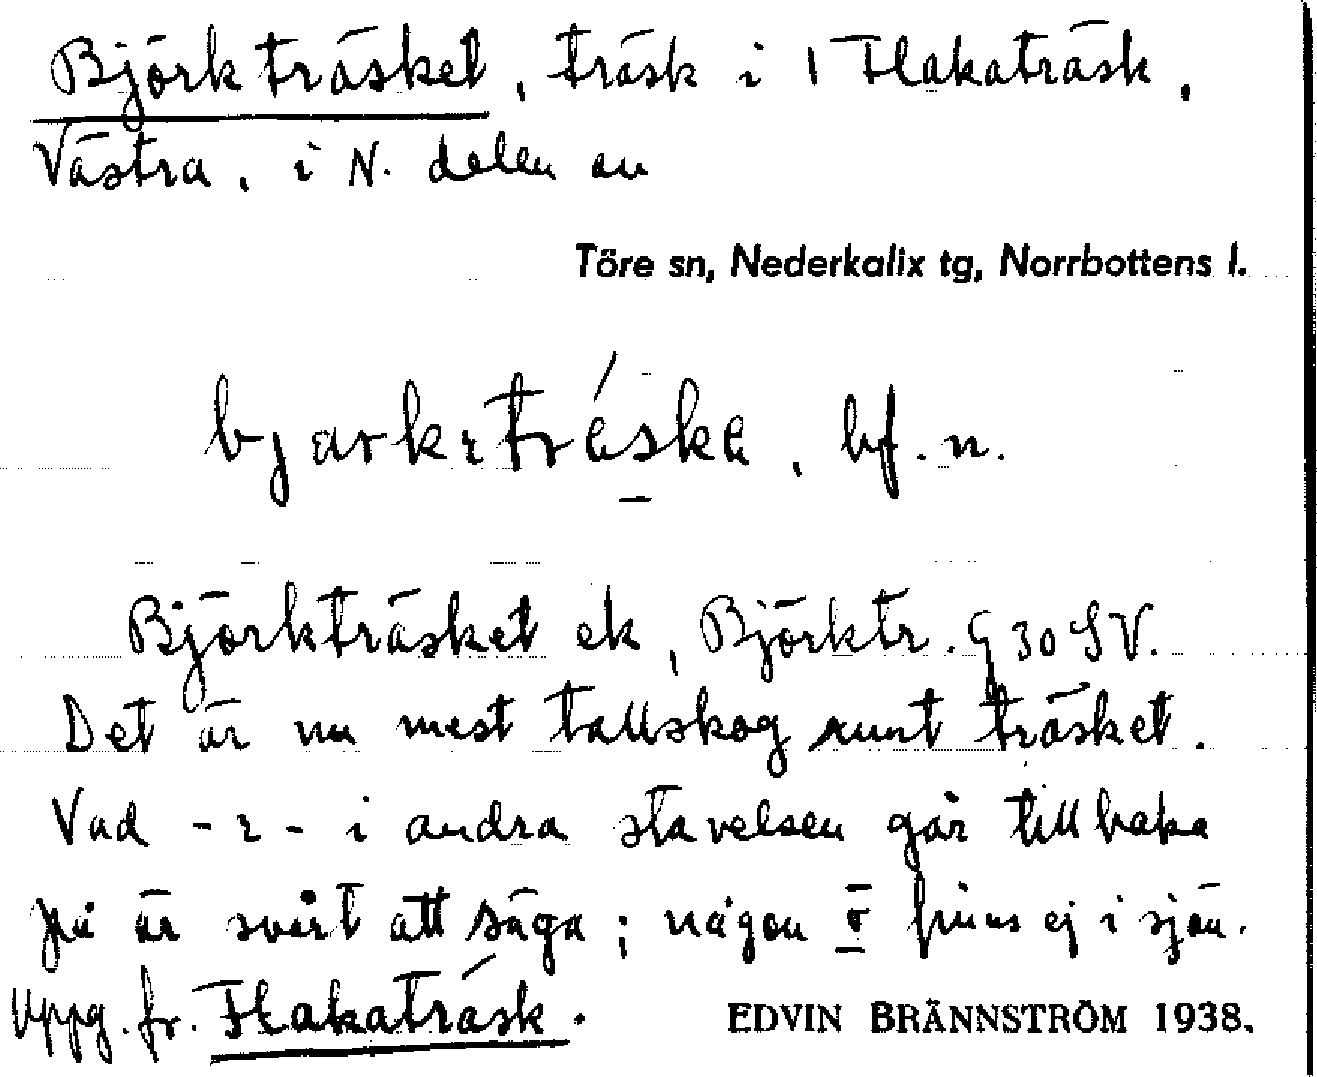 Björkträsket, träsk i 1 Flakaträsk,
Västra, i N. delen av
Töre sn, Nederkalix tg, Norrbottens l.
bjarkɩtrǻska, bf. n.
Björkträsket ek, Björktr. G 30 SV.
Det är nu mest tallskog runt träsket.
Vad -ɩ- i andra stavelsen går tillbaka
på är svårt att säga; någon ö finns ej i sjön.
Uppg. fr. Flakaträsk.
EDVIN BRÄNNSTRÖM 1938.